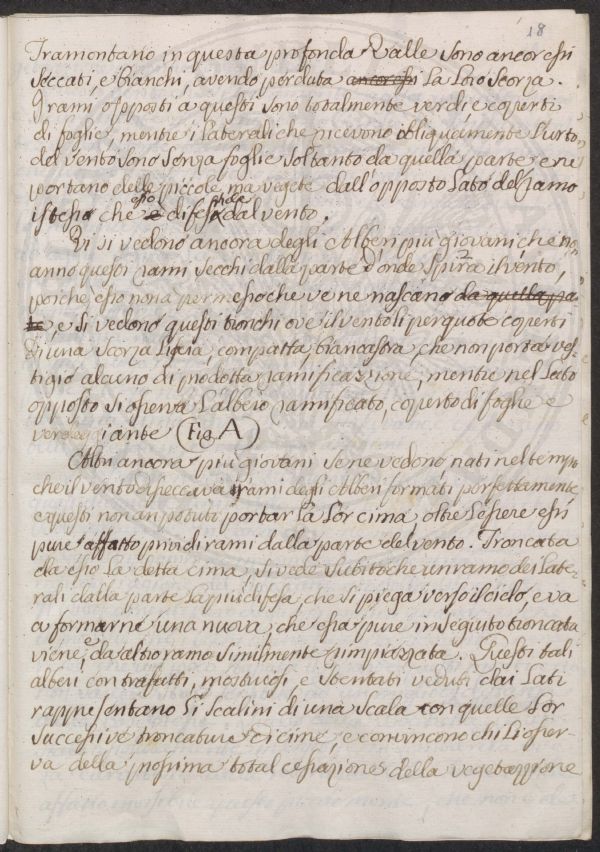 18
Tramontano in questa profonda Valle sono ancor essi
seccati, e bianchi, avendo perduta ancor essi la loro scorza.
I rami opposti a questi sono totalmente verdi e coperti
di foglie, mentre i laterali che ricevono obliquamente l'urto
del vento sono senza foglie soltanto da quella parte e ne
portano delle piccole, ma vegete dall'opposto lato del ramo
istesso che è difeso dal vento.
Vi si vedono ancora degli Alberi più giovani che non
anno questi rami secchi dalla parte d'onde spira il vento,
poichè esso non à permesso che ve ne nascano da quella par
te e si vedono questi tronchi ove il vento li perquote coperti
di una scorza liscia, compatta, biancastra, che non porta ves
tigio alcuno di prodotta ramificazione, mentre nel lato
opposto si osserva l'albero ramificato, coperto di foglie e
verdeggiante (Fig. A)
Altri ancora più giovani se ne vedono nati nel tempo
che il vento disseccava i rami degli Alberi formati perfettamente
e questi non an potuto portar la lor cima, oltre l'essere essi
pure affatto privi di rami dalla parte del vento. Troncata
da esso la detta cima, si vede subito che un ramo dei late-
rali dalla parte la più difesa, che si piega verso il cielo, e va
a formarne una nuova, che essa pure in seguito troncata
viene, e da altro ramo similmente rimpiazzata. Questi tali
alberi contrafatti, mostruosi, e stentati veduti dai lati
rappresentano li scalini di una scala con quelle lor
successive troncature di cime, e convincono chi li osser-
va della prossima total cessazione della vegetazzione